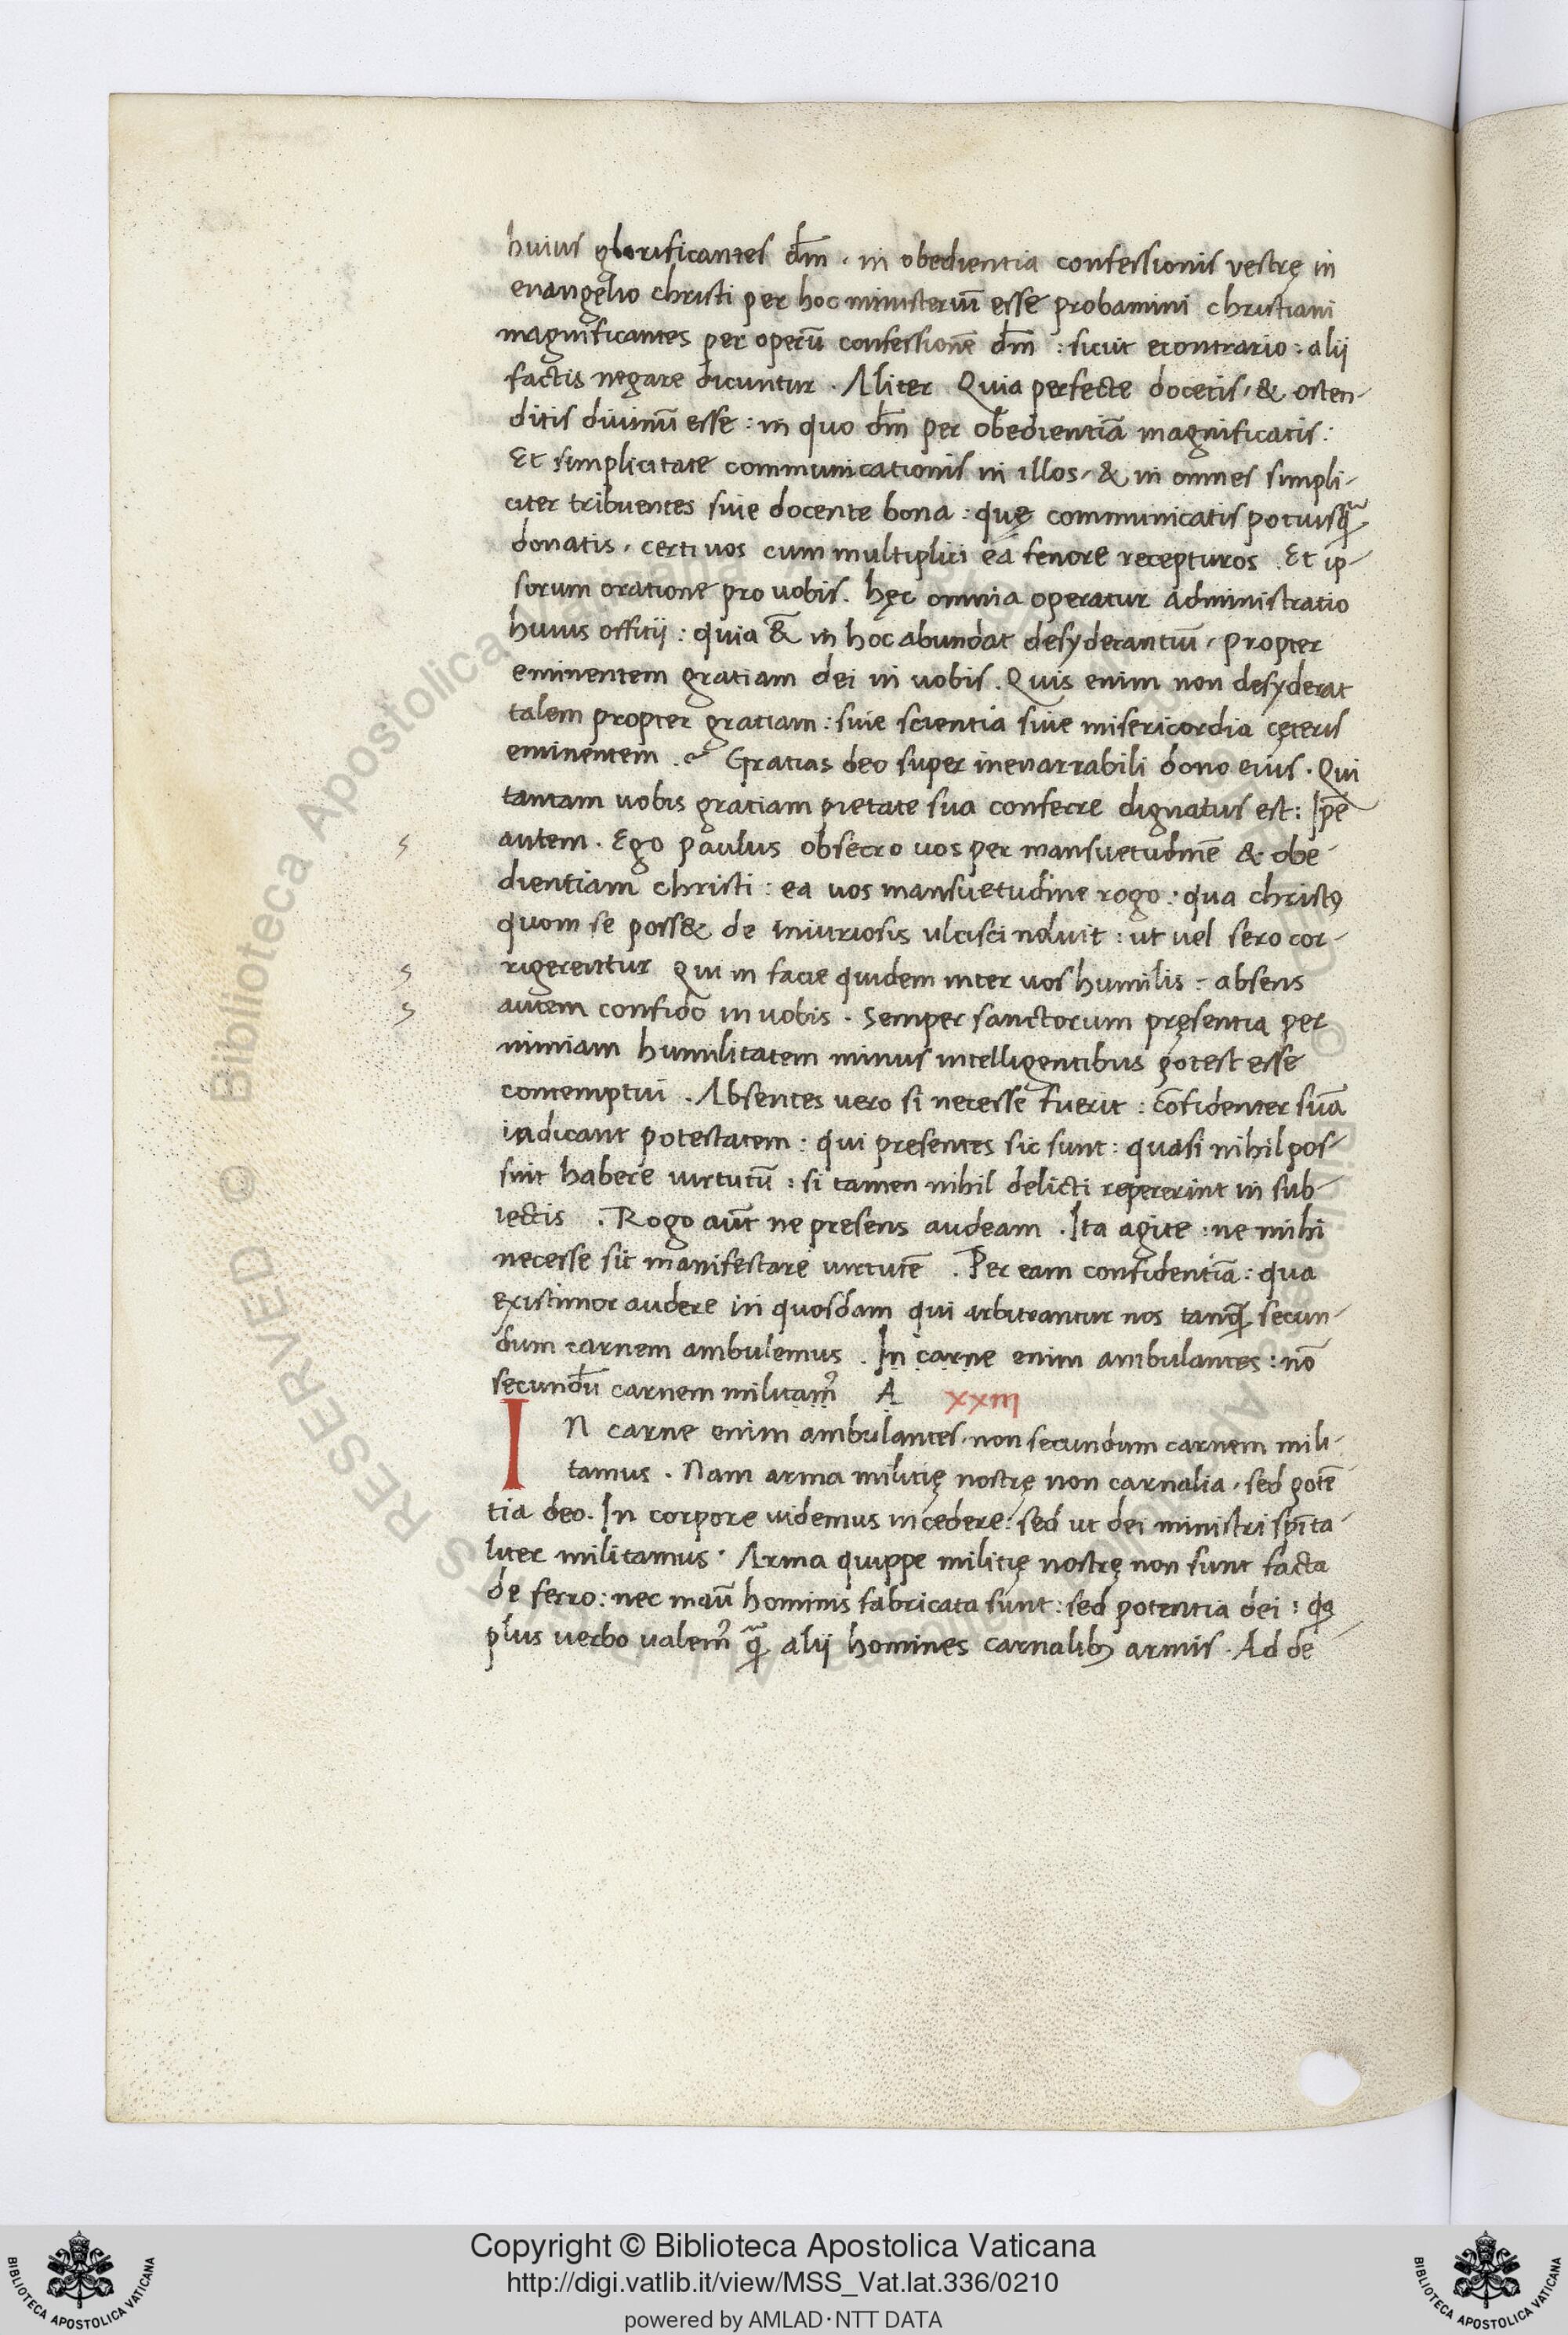 huius glorificantes dm̄ · in obedientia confessionis vestrę in
euangelio christi per hoc ministeriū esse probamini christiani
magnificantes per operū confessionē dm̄ : sicut econtrario : alii
factis negare dicuntur . Aliter Quia perfecte docetis, & osten-
ditis diuinū esse : in quo dm̄ per obedientiā magnificatis :
Et simplicitate communicationis in illos, & in omnes simpli-
citer tribuentes siue docente bona : quę communicatis potiusq̄
donatis, certi uos cum multiplici ea fenore recepturos . Et ip-
sorum oratione pro uobis . hęc omnia operatur administratio
huius offitii : quia & in hoc abundat desyderantiū, propter
eminentem gratiam dei in uobis . Quis enim non desyderat
talem propter gratiam : siue scientia siue misericordia cęteris
eminentem . Gratias deo super inenarrabili dono eius . Qui
tantam uobis gratiam pietate sua conferre dignatus est : Ipē
autem . Ego paulus obsecro uos per mansuetudinē & obe-
dientiam christi : ea uos mansuetudine rogo : qua christꝯ
quom se poss& de iniuriosis ulcisci noluit : ut uel sero cor-
rigerentur Qui in facie quidem inter uos humilis : absens
autem confido in uobis . Semper sanctorum pręsentia per
nimiam humilitatem minus intelligentibus potest esse
contemptui . Absentes uero si necesse fuerit : cōfidenter suā
indicant potestatem : qui presentes sic sunt : quasi nihil pos-
sint habere uirtutū : si tamen nihil delicti repererint in sub-
iectis . Rogo aūt ne presens audeam . Ita agite : ne mihi
necesse sit manifestare uirtutē . Per eam confidentiā : qua
existimor audere in quosdam qui arbitrantur nos tanq̄ secun-
dum carnem ambulemus . In carne enim ambulantes : nō
secundū carnem militam᾽ A xxiii
IN carne enim ambulantes, non secundum carnem mili-
tamus . Nam arma militię nostrę non carnalia, sed potē
tia deo . In corpore uidemus incedere : sed ut dei ministri spīta-
liter militamus . Arma quippe militię nostrę non sunt facta
de ferro : nec manū hominis fabricata sunt : sed potentia dei : qꝫ
plus uerbo ualem᾽ q̄ alii homines carnalibꝫ armis . Ad de
Copyright © Biblioteca Apostolica Vaticana
http://digi.vatlib.it/view/MSS_Vat.lat.336/0210
powered by AMLAD·NTT DATA